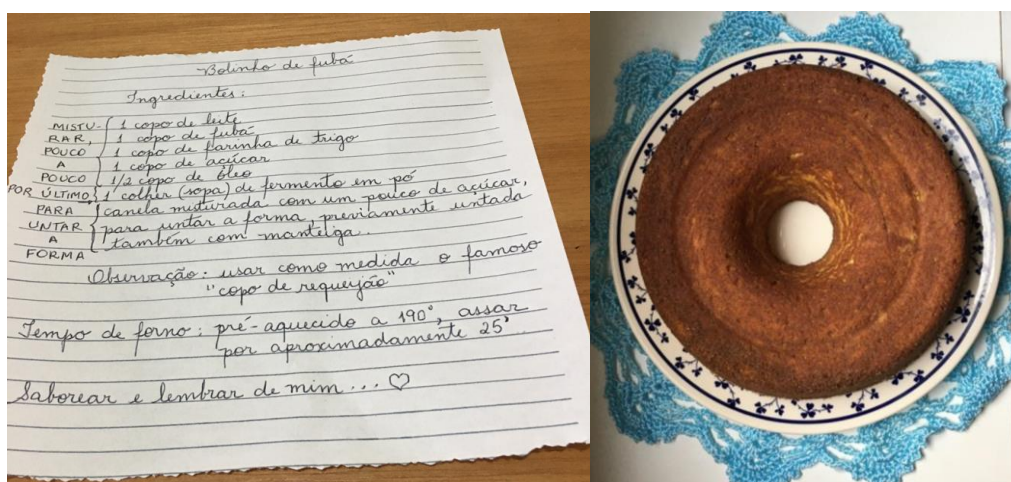 Bolinho de fubá
Ingredientes:
MISTU- 1 copo de leite
RAR, 1 copo de fubá
POUCO 1 copo de farinha de trigo
A 1 copo de açúcar
POUCO 1/2 copo de óleo
POR ÚLTIMO 1 colher (sopa) de fermento em pó
PARA canela misturada com um pouco de açúcar,
UNTAR para untar a forma, previamente untada
A também com manteiga.
FORMA
Observação: usar como medida o famoso
"copo de requeijão"
Tempo de forno: pré-aquecido a 190°, assar
por aproximadamente 25'
Saborear e lembrar de mim... ♡